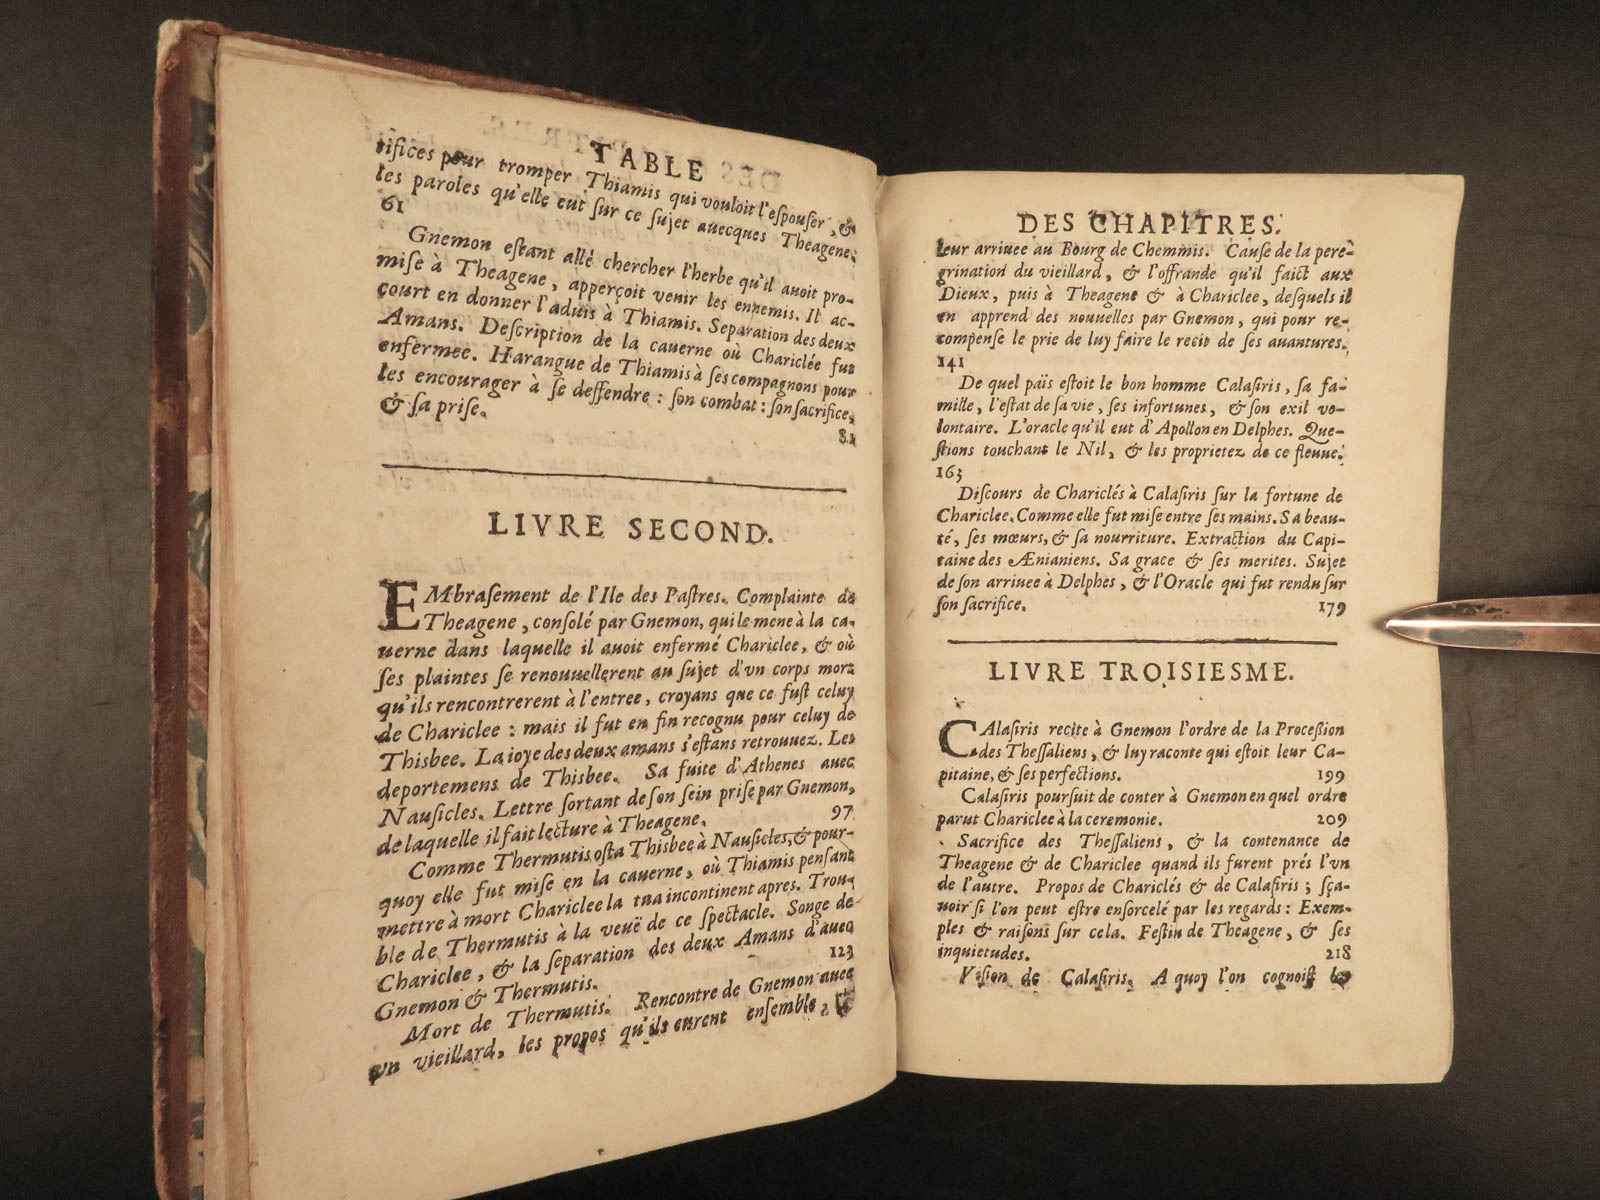 TABLE
tifices pour tromper Thiamis qui vouloit l'espouser, &
les paroles qu'elle eut sur ce sujet auecques Theagene.
61
Gnemon estant allé chercher l'herbe qu'il auoit pro-
mise à Theagene, apperçoit venir les ennemis. Il ac-
court en donner l'aduis à Thiamis. Separation des deux
Amans. Description de la cauerne où Chariclée fut
enfermee. Harangue de Thiamis à ses compagnons pour
les encourager à se deffendre : son combat : son sacrifice,
& sa prise.
81
LIVRE SECOND.
EMbrasement de l'Ile des Pastres. Complainte de
Theagene, consolé par Gnemon, qui le mene à la ca-
uerne dans laquelle il auoit enfermé Chariclee, & où
ses plaintes se renouuellerent au sujet d'vn corps mort
qu'ils rencontrerent à l'entree, croyans que ce fust celuy
de Chariclee : mais il fut en fin recognu pour celuy de
Thisbee. La ioye des deux amans s'estans retrouuez. Les
deportemens de Thisbee. Sa fuite d'Athenes auec
Nausicles. Lettre sortant de son sein prise par Gnemon,
de laquelle il fait lecture à Theagene. 97
Comme Thermutis osta Thisbee à Nausicles, & pour-
quoy elle fut mise en la cauerne, où Thiamis pensant
mettre à mort Chariclee la tua incontinent apres. Trou-
ble de Thermutis à la veuë de ce spectacle. Songe de
Chariclee, & la separation des deux Amans d'auec
Gnemon & Thermutis. 123
Mort de Thermutis. Rencontre de Gnemon auec
vn vieillard, les propos qu'ils eurent ensemble, &
DES CHAPITRES.
leur arriuee au Bourg de Chemmis. Cause de la pere-
grination du vieillard, & l'offrande qu'il faict aux
Dieux, puis à Theagene & à Chariclee, desquels il
en apprend des nouuelles par Gnemon, qui pour re-
compense le prie de luy faire le recit de ses auantures.
141
De quel païs estoit le bon homme Calasiris, sa fa-
mille, l'estat de sa vie, ses infortunes, & son exil vo-
lontaire. L'oracle qu'il eut d'Apollon en Delphes. Que-
stions touchant le Nil, & les proprietez de ce fleuue.
163
Discours de Chariclés à Calasiris sur la fortune de
Chariclee. Comme elle fut mise entre ses mains. Sa beau-
té, ses mœurs, & sa nourriture. Extraction du Capi-
taine des Ænianiens. Sa grace & ses merites. Sujet
de son arriuee à Delphes, & l'Oracle qui fut rendu sur
son sacrifice. 179
LIVRE TROISIESME.
CAlasiris recite à Gnemon l'ordre de la Procession
des Thessaliens, & luy raconte qui estoit leur Ca-
pitaine, & ses perfections. 199
Calasiris poursuit de conter à Gnemon en quel ordre
parut Chariclee à la ceremonie. 209
Sacrifice des Thessaliens, & la contenance de
Theagene & de Chariclee quand ils furent prés l'vn
de l'autre. Propos de Chariclés & de Calasiris ; sça-
uoir si l'on peut estre ensorcelé par les regards : Exem-
ples & raisons sur cela. Festin de Theagene, & ses
inquietudes. 218
Vision de Calasiris. A quoy l'on cognoist les